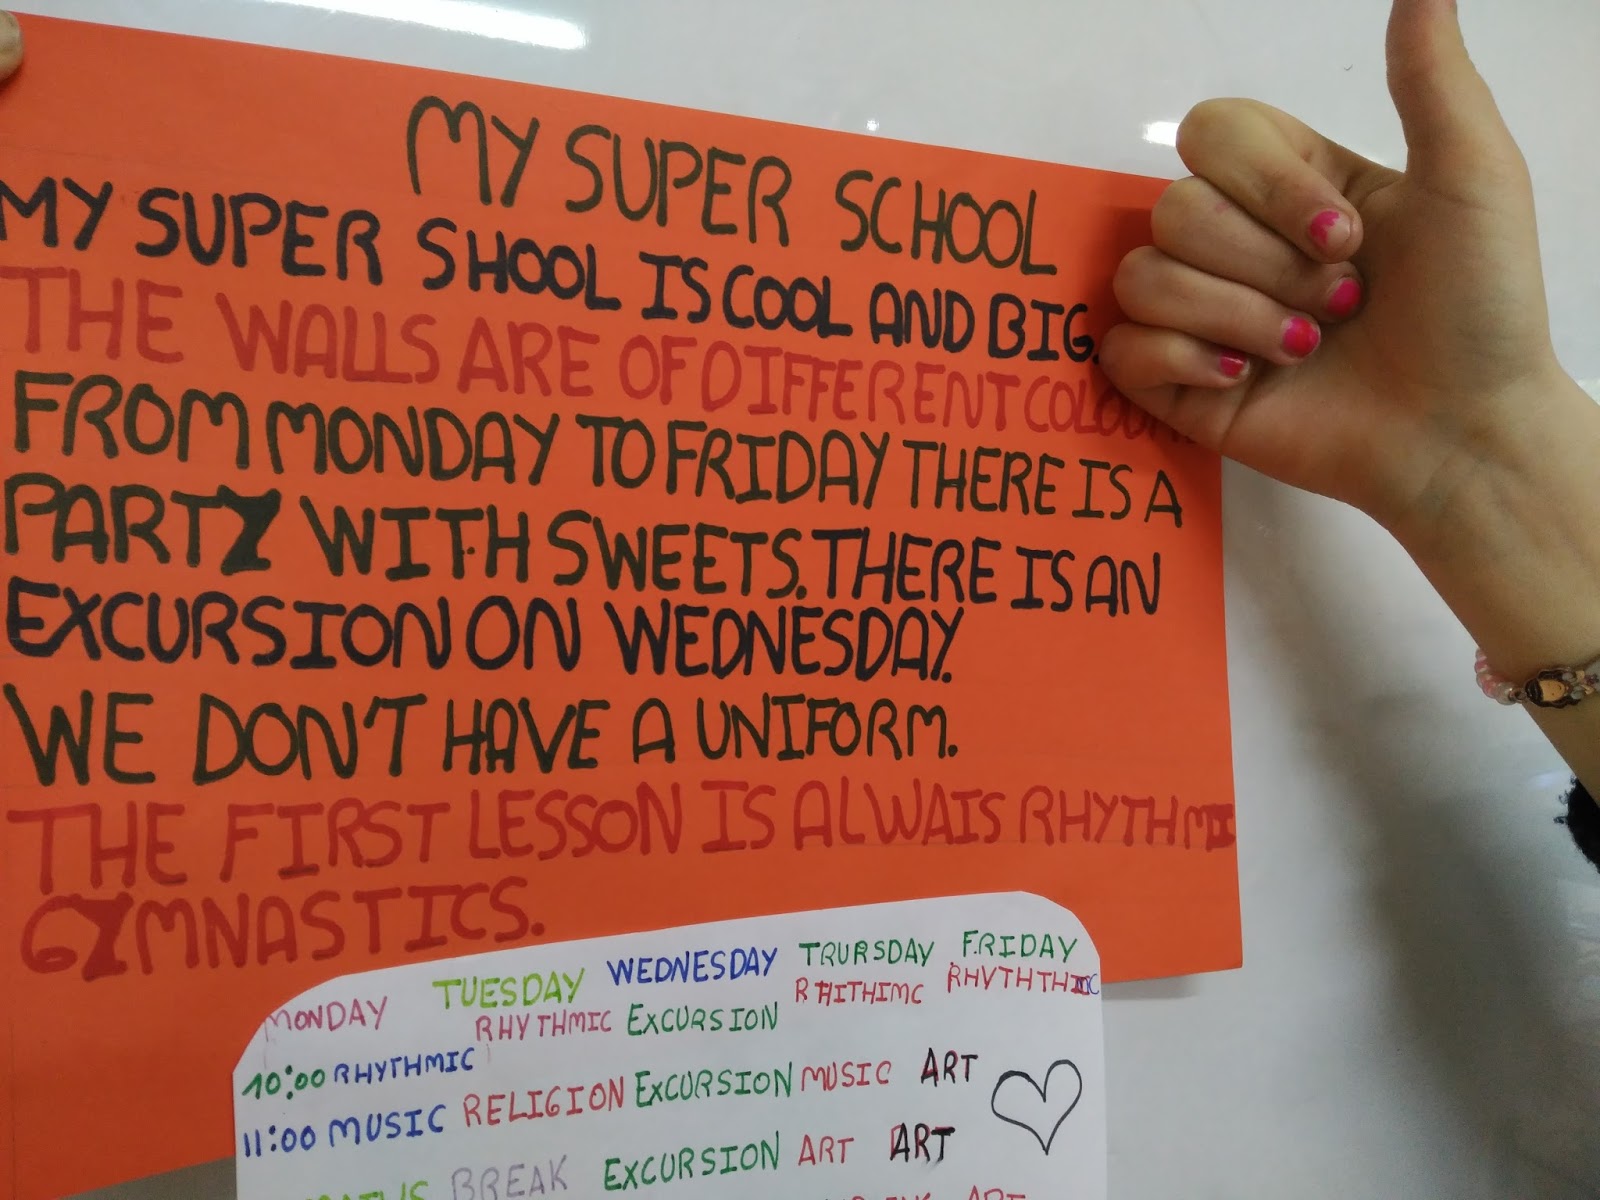 MY SUPER SCHOOL
MY SUPER SHOOL IS COOL AND BIG.
THE WALLS ARE OF DIFFERENT
FROM MONDAY TO FRIDAY THERE IS A
PARTY WITH SWEETS. THERE IS AN
EXCURSION ON WEDNESDAY.
WE DON'T HAVE A UNIFORM.
THE FIRST LESSON IS ALWAIS RHYTHMIC
GYMNASTICS.
MONDAY TUESDAY WEDNESDAY TRURSDAY FRIDAY
10:00 RHYTHMIC RHYTHMIC EXCURSION RHITHIMC RHYTHTHMIC
11:00 MUSIC RELIGION EXCURSION MUSIC ART
BREAK EXCURSION ART ART
ART